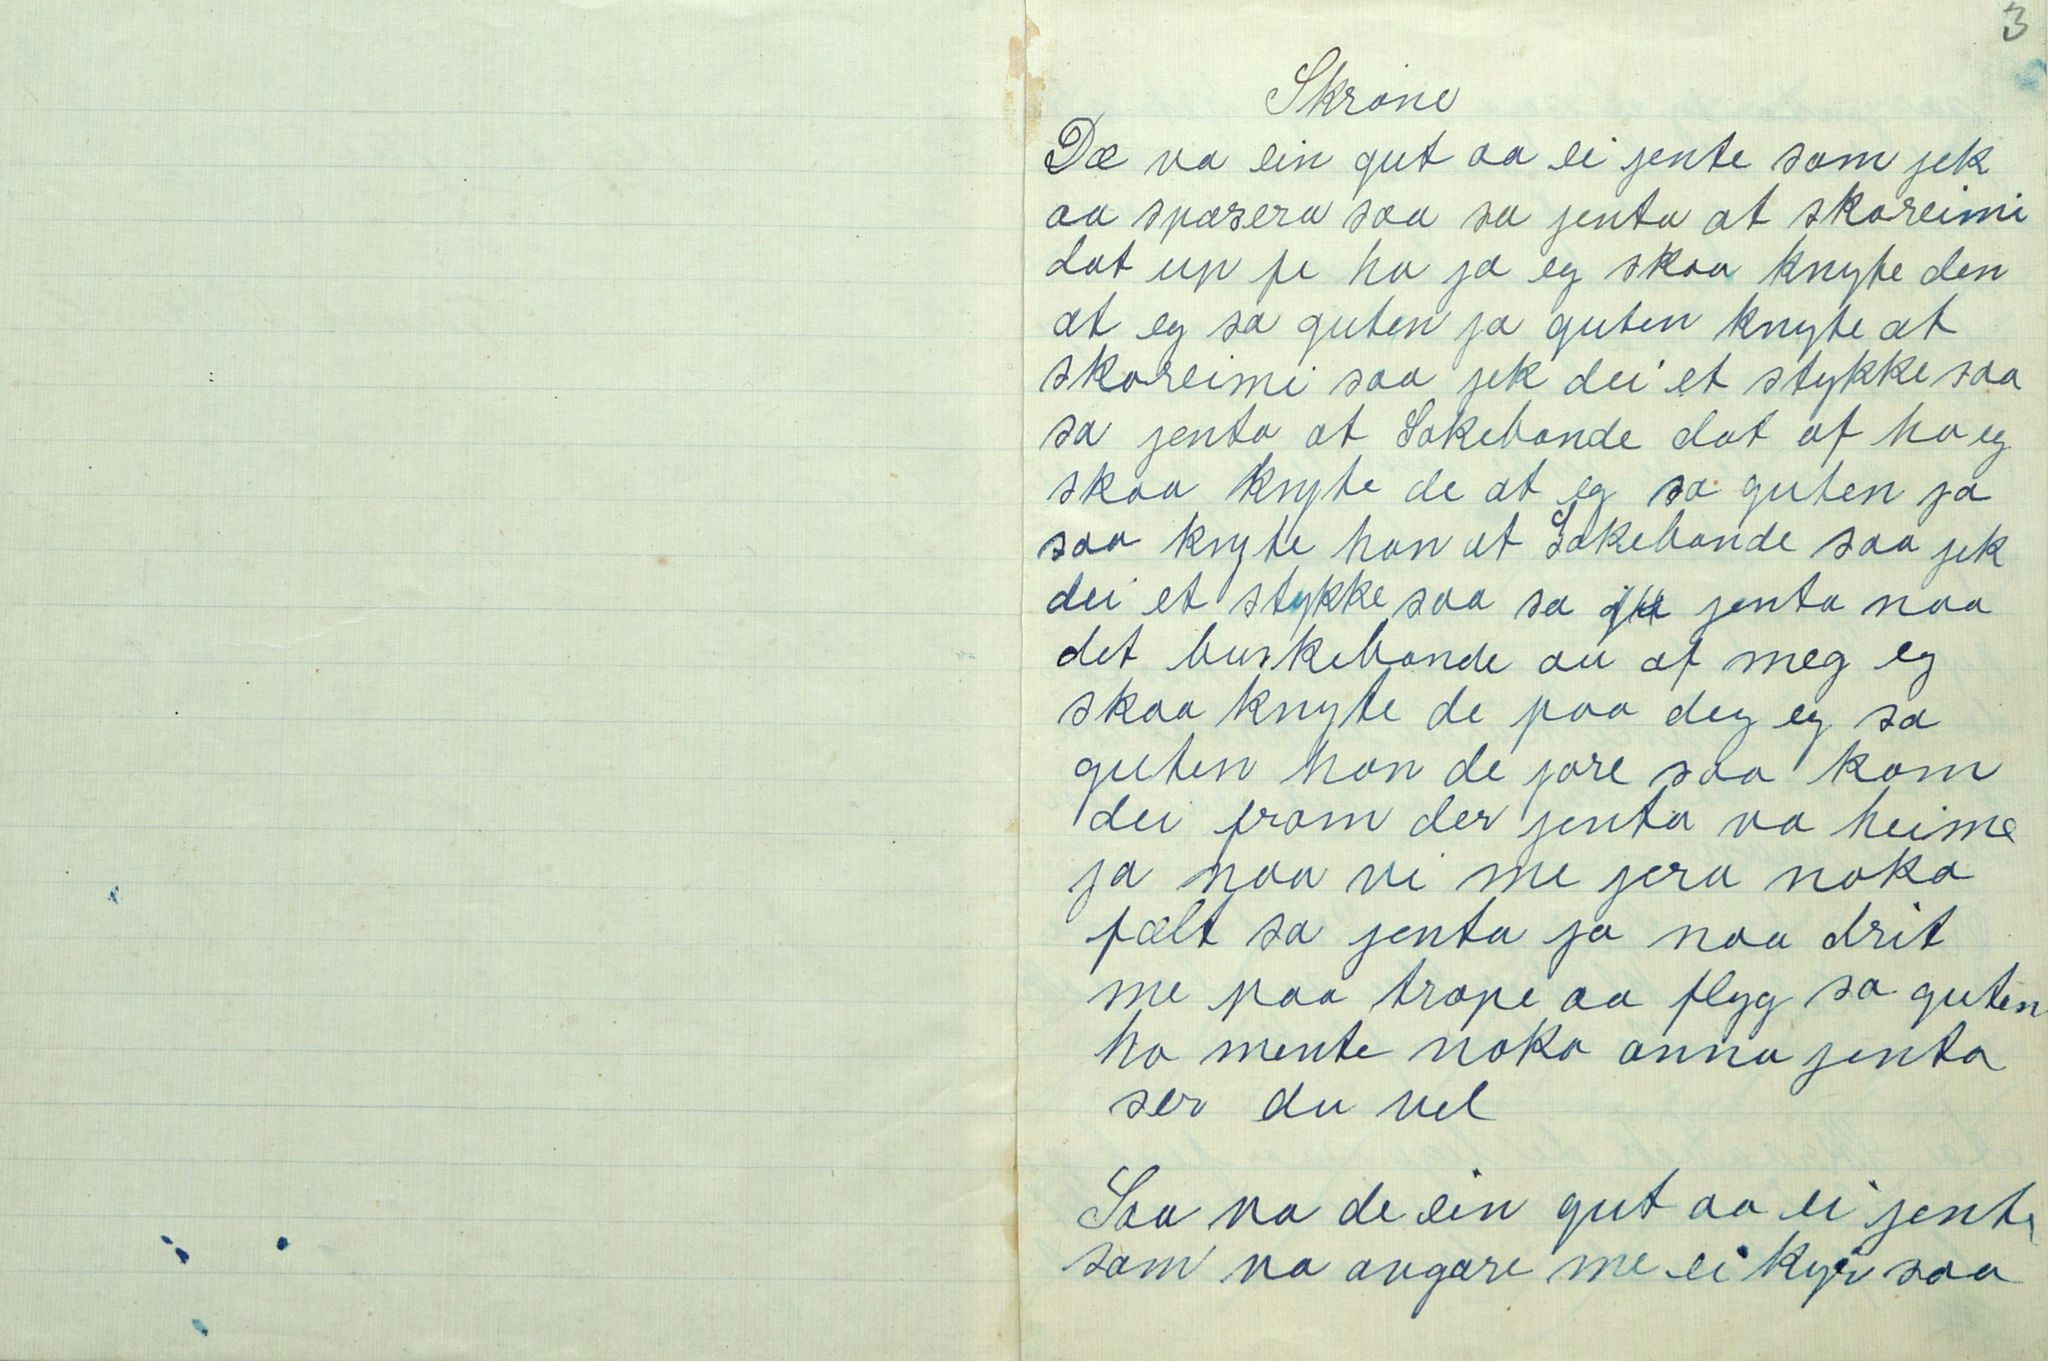 3
Skrone
Dæ va ein gut aa ei jente som jek
aa spasera saa sa jenta at skoreimi
dat up fe ho ja eg skaa knyte den
at eg sa guten ja guten knyte at
skoreimi saa jek dei et stykke saa
sa jenta at Sokebande dat af ho eg
skaa knyte de at eg sa guten ja
saa knyte han at Sokebande saa jek
dei et stykke saa sa jenta naa
det buskebande au af meg eg
skaa knyte de paa deg eg sa
guten han de jore saa kom
dei fram der jenta va heime
ja naa vi me jera noko
fælt sa jenta ja naa drit
me paa trape aa flyg sa guten
ho mente noko anna jenta
ser du vel
Saa va de ein gut aa ei jente
som va avgare me ei kyr saa